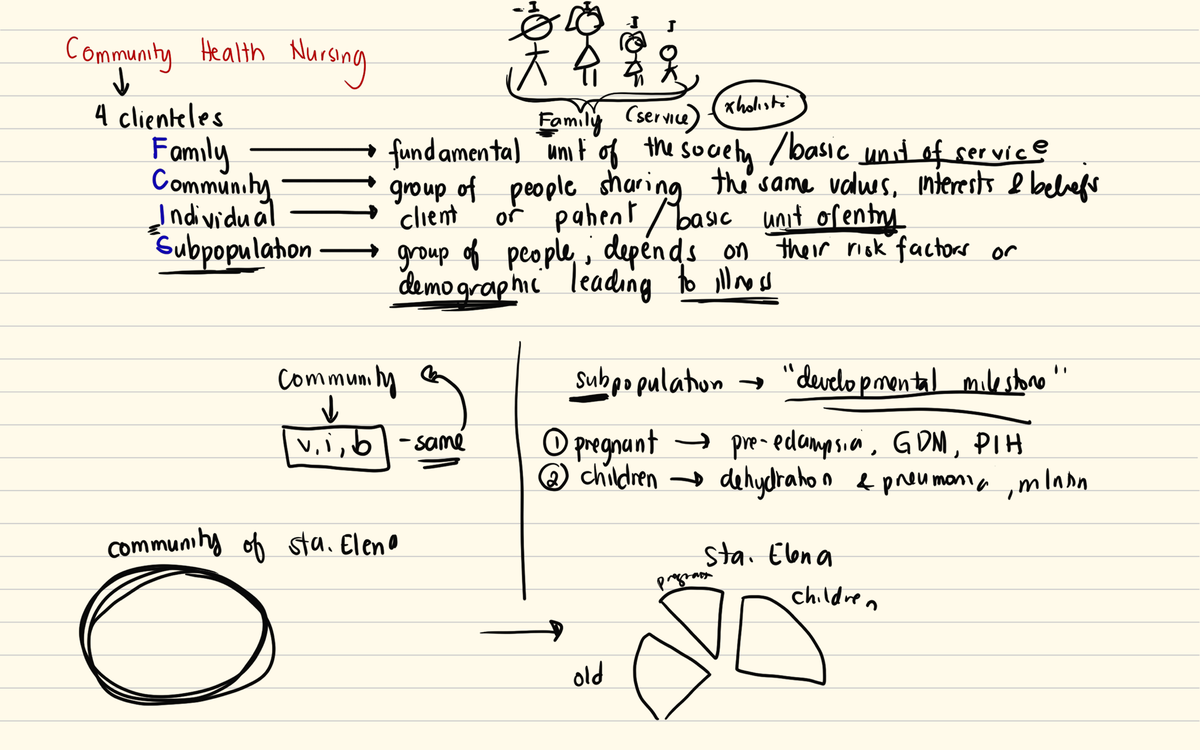 Community Health Nursing
- I I I I
4 clienteles
Family (service) - xholistic
Family → fundamental unit of the society / basic unit of service
Community → group of people sharing the same values, interests & beliefs
Individual → client or patient / basic unit of entry
Subpopulation → group of people ; depends on their risk factors or
demographic leading to illness
Community
v, i, b - same
subpopulation → "developmental milestone"
① pregnant → pre-eclampsia, GDM, PIH
② children → dehydration & pneumonia ,
community of sta. Elena
Sta. Elena
pregnant
children
old